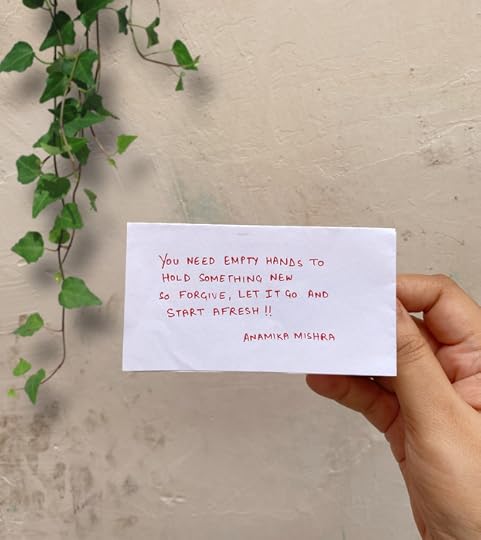 YOU NEED EMPTY HANDS TO
HOLD SOMETHING NEW
SO FORGIVE, LET IT GO AND
START AFRESH !!
ANAMIKA MISHRA